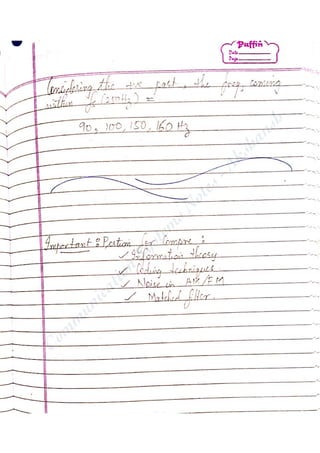 Puffin
Date
Page
Considering the +ve part, the freq. coming
within fc (200Hz) =
90, 100, 150, 160 Hz
Important : Portion for Compre :
✓ Information theory
✓ Coding techniques
✓ Noise in AM/FM
✓ Matched filter.